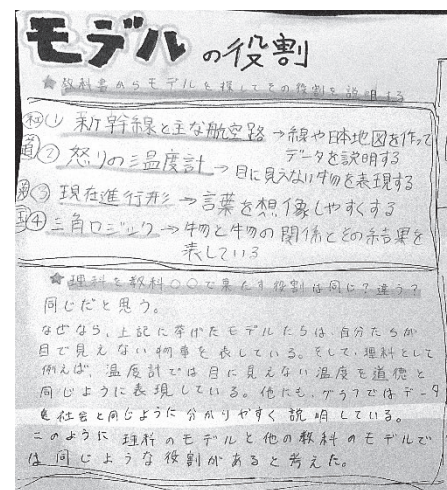 モデルの役割
★教科書からモデルを探してその役割を説明する
① 新幹線と主な航空路 → 線や日本地図を作って
データを説明する
② 怒りの温度計 → 目に見えない物を表現する
③ 現在進行形 → 言葉を想像しやすくする
④ 三角ロジック → 物と物の関係とその結果を
表している
★理科と教科○○で果たす役割は同じ?違う?
同じだと思う。
なぜなら、上記に挙げたモデルたちは、自分たちが
目で見えない物事を表している。そして、理科として
例えば、温度計では目に見えない温度を道徳と
同じように表現している。他にも、グラフではデータ
を社会と同じように分かりやすく説明している。
このように理科のモデルと他の教科のモデルで
は同じような役割があると考えた。